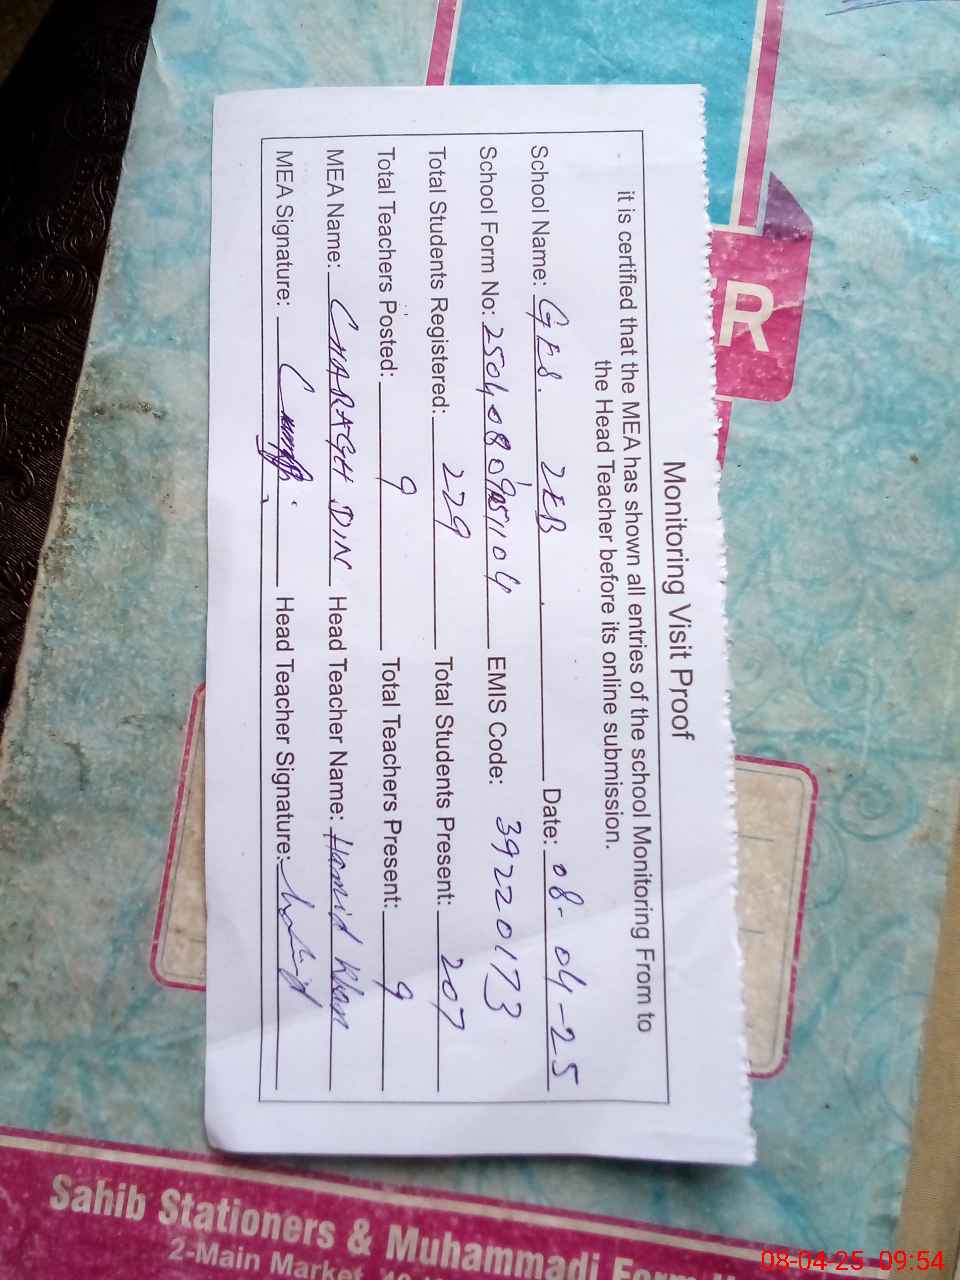 Monitoring Visit Proof
it is certified that the MEA has shown all entries of the school Monitoring From to
the Head Teacher before its online submission.
School Name: GES. 2EB Date: 08-04-25
School Form No: EMIS Code: 39220173
Total Students Registered: 229 Total Students Present: 207
Total Teachers Posted: 9 Total Teachers Present: 9
MEA Name: CHARAGH DIN Head Teacher Name: Hamid Khan
MEA Signature: Head Teacher Signature: Hamid
R
Sahib Stationers & Muhammadi
2-Main Market
08-04-25 09:54